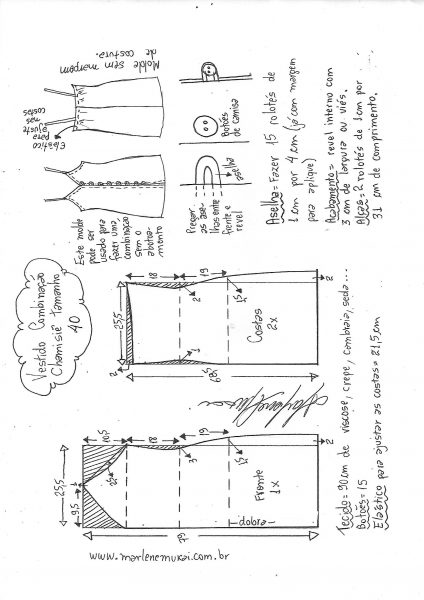 www.marlenemukai.com.br
Vestido Combinação
Chamisiê tamanho
40
Este molde
pode ser
usado para
fazer uma
combinação
sem o
abotoa-
mento
Elástico
para
ajuste
nas
costas
Molde sem margem
de costura.
Pregar
as ase-
lhas entre
frente e
revel
Aselha
Botões
de camisa
Aselha = Fazer 15 rolotês de
1 cm por 4 cm (já com margem
para aplique)
Acabamento = revel interno com
3 cm de largura ou viés.
Alças = 2 rolotês de 1cm por
31 cm de comprimento.
25,5
9,5
10,5
18
19
3
1,5
2
79
Frente
1x
-dobra-
25,5
2
18
19
2
1
1,5
2
68,5
Costas
2x
Tecido = 90cm de viscose, crepe, cambraia, seda ...
Botões = 15
Elástico para ajustar as costas = 21,5cm